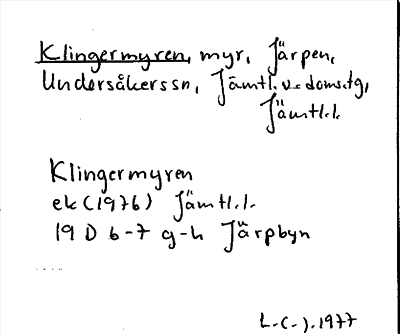 Klingermyren, myr, Järpen,
Undersåkerssn, Jämtl. v. doms.tg,
Jämtl.l.
Klingermyren
ek (1976) Jämtl.l.
19 D 6-7 g-h Järpbyn
L.(-).1977